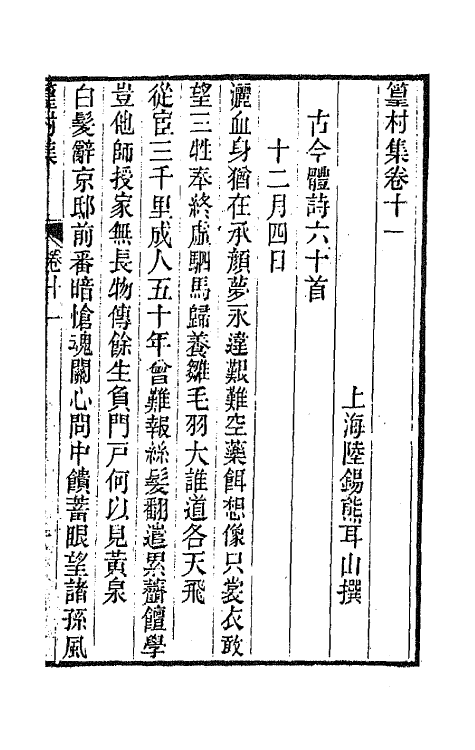 篁村集卷十一
上海陸錫熊耳山撰
古今體詩六十首
十二月四日
灑血身猶在承顏夢永違艱難空藥餌想像只裳衣敢
望三牲奉終虛駟馬歸養雛毛羽大誰道各天飛
從宦三千里成人五十年曾難報絲髮翻遣累虀饘學
豈他師授家無長物傳餘生負門戸何以見黃泉
白髮辭京邸前番暗愴魂關心問中饋蓄眼望諸孫風
篁村集
卷十一